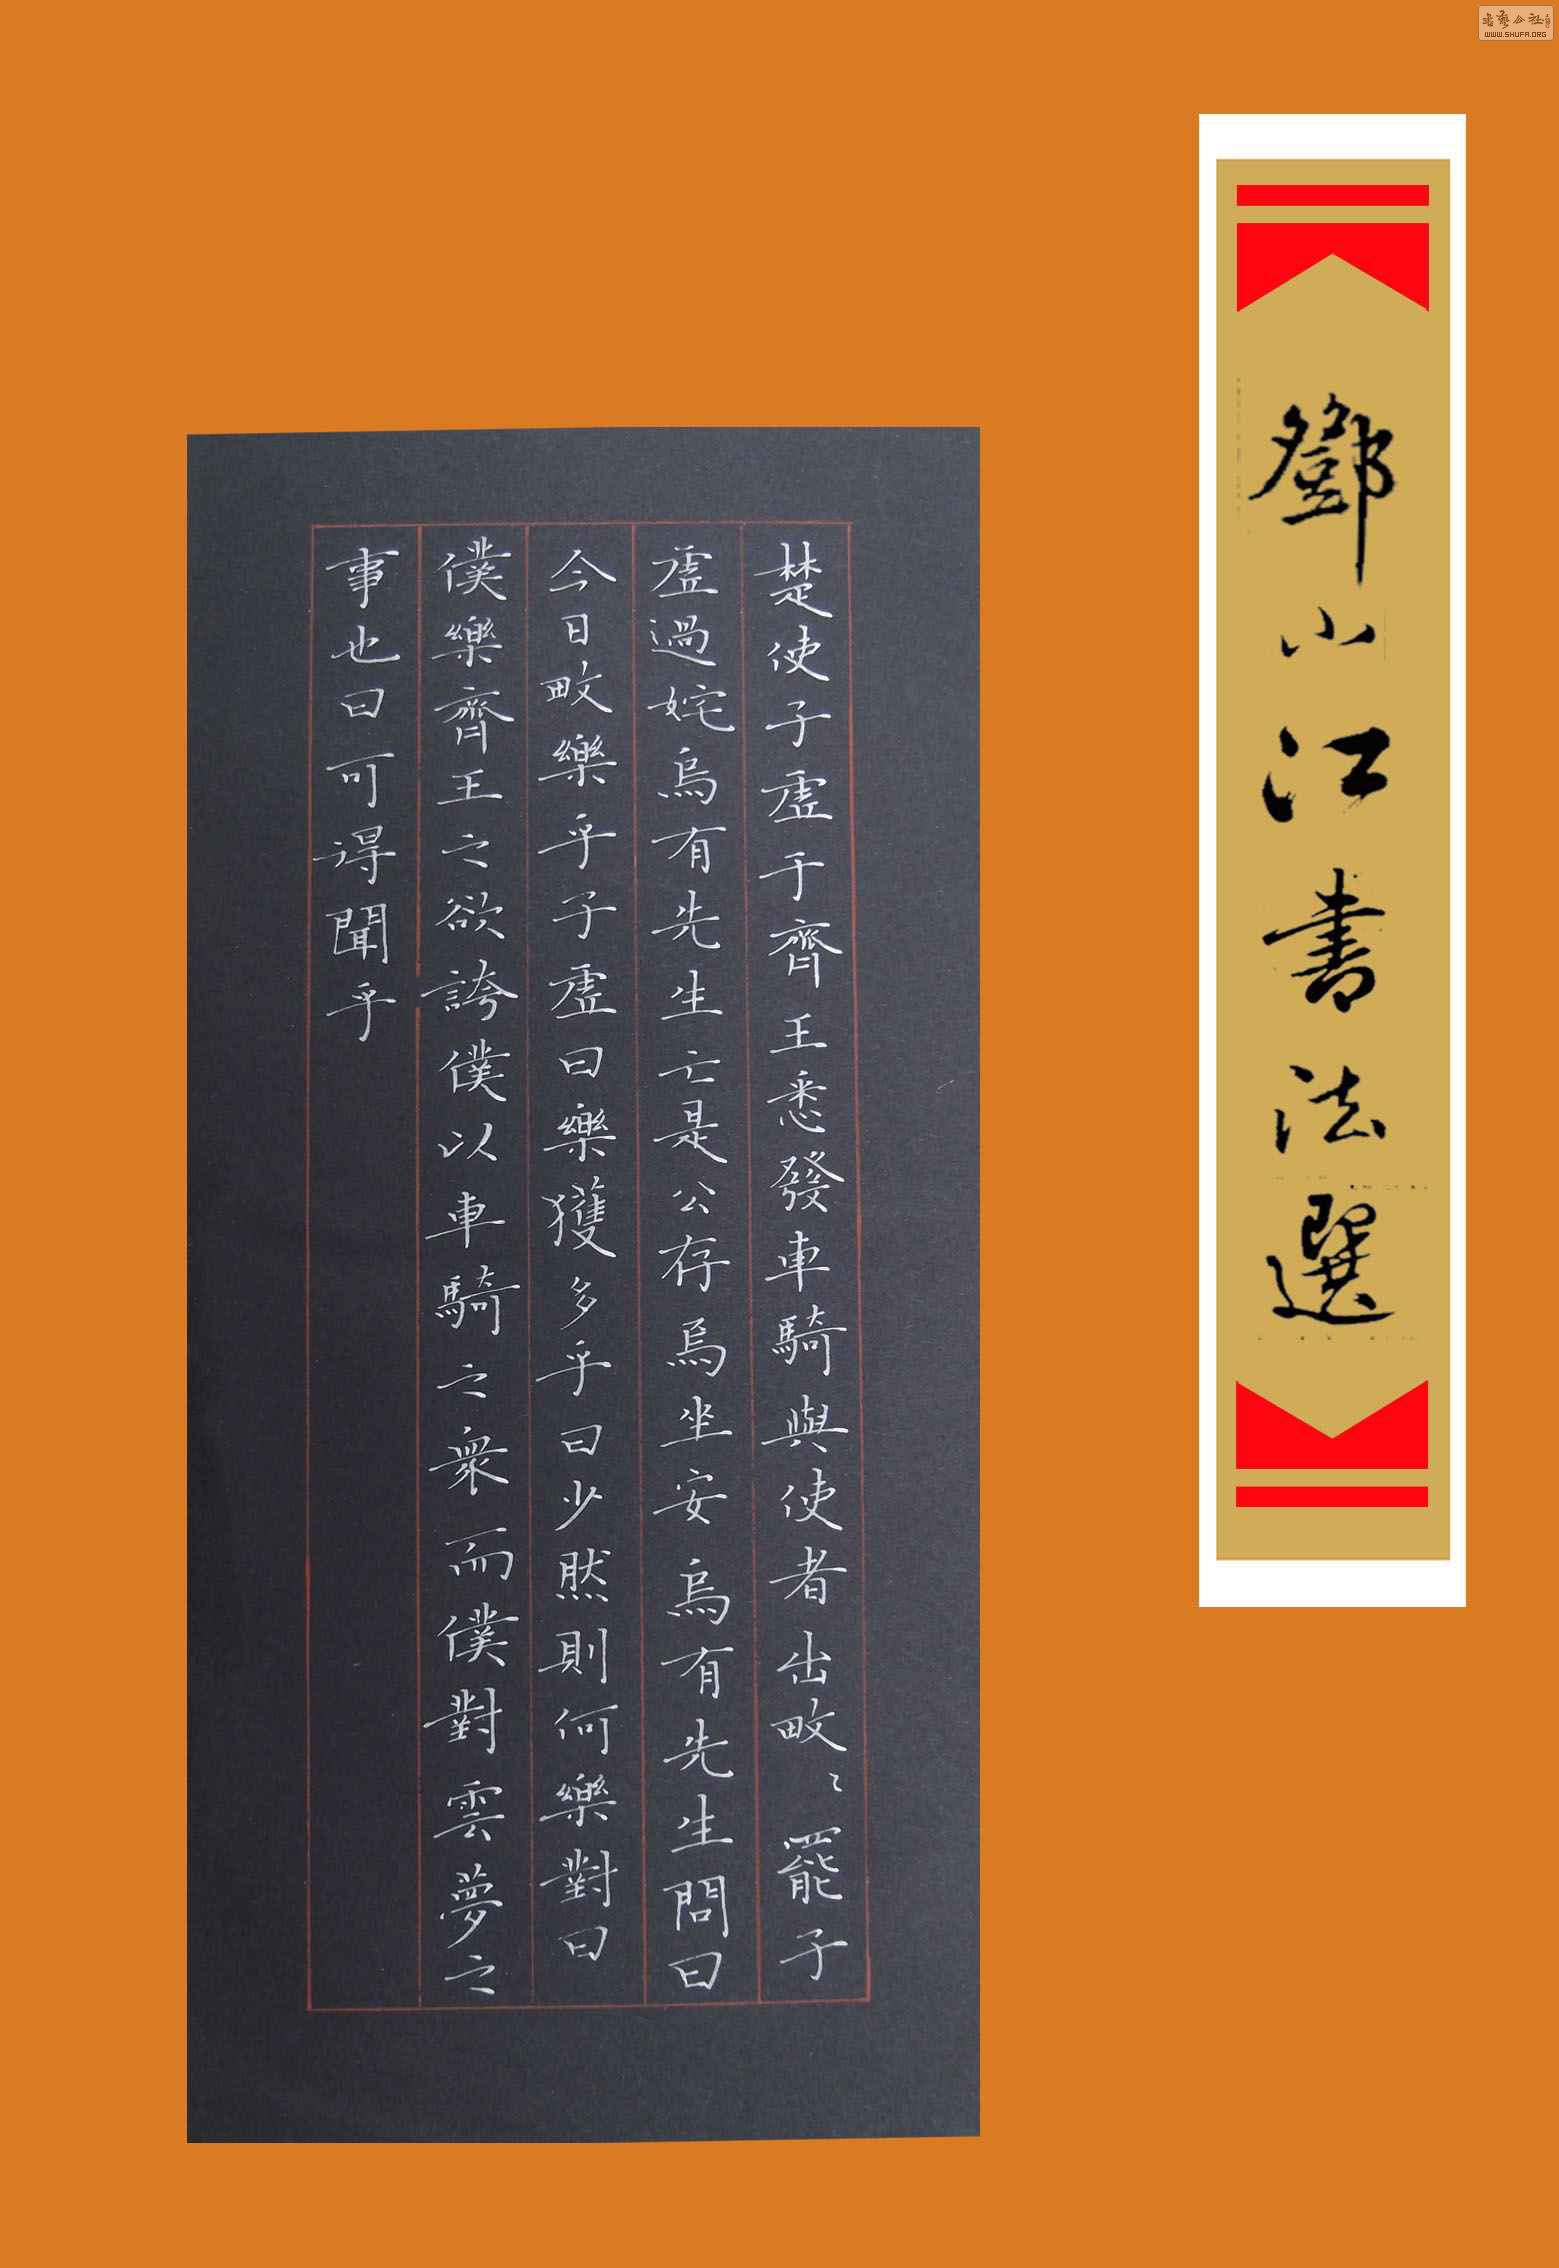 書藝公社
WWW.SHUFA.ORG
鄧小江書法選
楚使子虛于齊王悉發車騎與使者出畋〻罷子
虛過姹烏有先生亡是公存焉坐安烏有先生問曰
今日畋樂乎子虛曰樂獲多乎曰少然則何樂對曰
僕樂齊王之欲誇僕以車騎之衆而僕對雲夢之
事也曰可得聞乎